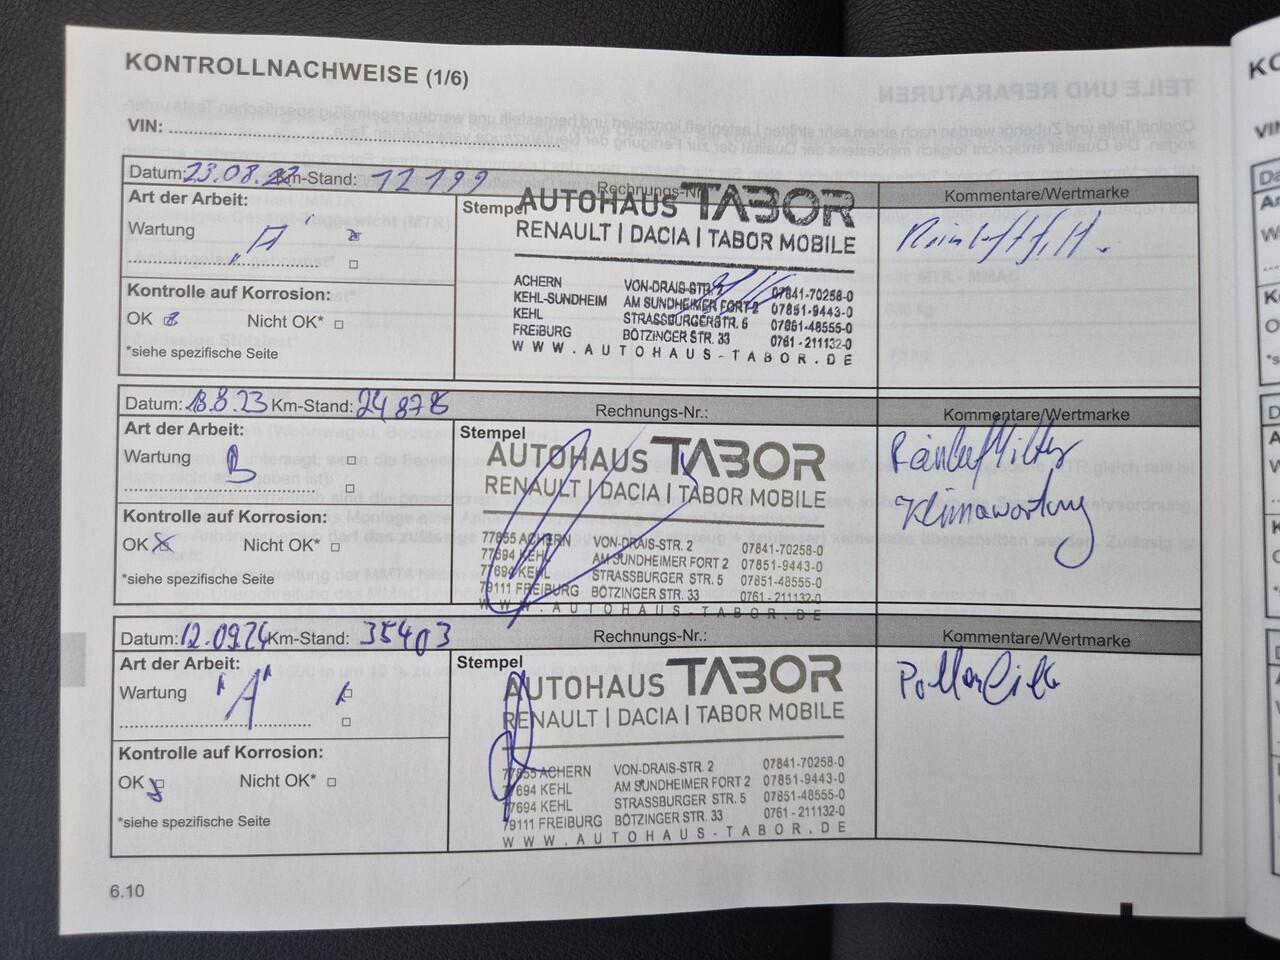 KONTROLLNACHWEISE (1/6)
VIN:
Datum: 23.08.22 Km-Stand: 12199 Rechnungs-Nr.: Kommentare/Wertmarke
Art der Arbeit:
Wartung A
Kontrolle auf Korrosion:
OK Nicht OK*
*siehe spezifische Seite
Stempel
AUTOHAUS TABOR
RENAULT | DACIA | TABOR MOBILE
ACHERN VON-DRAIS-STR. 2 07841-70258-0
KEHL-SUNDHEIM AM SUNDHEIMER FORT 2 07851-9443-0
KEHL STRASSBURGERSTR. 5 07851-48555-0
FREIBURG BÖTZINGER STR. 33 0761-211132-0
WWW.AUTOHAUS-TABOR.DE
Datum: 18.8.23 Km-Stand: 24878 Rechnungs-Nr.: Kommentare/Wertmarke
Art der Arbeit:
Wartung B
Kontrolle auf Korrosion:
OK Nicht OK*
*siehe spezifische Seite
Stempel
AUTOHAUS TABOR
RENAULT | DACIA | TABOR MOBILE
77855 ACHERN VON-DRAIS-STR. 2 07841-70258-0
77694 KEHL AM SUNDHEIMER FORT 2 07851-9443-0
77694 KEHL STRASSBURGER STR. 5 07851-48555-0
79111 FREIBURG BÖTZINGER STR. 33 0761-211132-0
WWW.AUTOHAUS-TABOR.DE
Klimawartung
Datum: 12.09.24 Km-Stand: 35403 Rechnungs-Nr.: Kommentare/Wertmarke
Art der Arbeit:
Wartung "A"
Kontrolle auf Korrosion:
OK Nicht OK*
*siehe spezifische Seite
Stempel
AUTOHAUS TABOR
RENAULT | DACIA | TABOR MOBILE
77855 ACHERN VON-DRAIS-STR. 2 07841-70258-0
77694 KEHL AM SUNDHEIMER FORT 2 07851-9443-0
77694 KEHL STRASSBURGER STR. 5 07851-48555-0
79111 FREIBURG BÖTZINGER STR. 33 0761-211132-0
WWW.AUTOHAUS-TABOR.DE
Pollenfilter
6.10